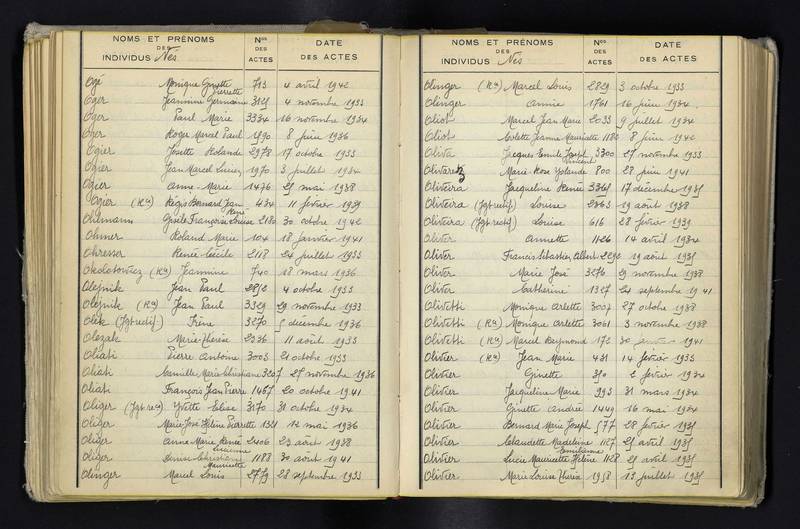 NOMS ET PRÉNOMS DES INDIVIDUS Nés
Nos DES ACTES
DATE DES ACTES
Ogé Monique Ginette Pierrette 713 4 avril 1942
Oger Jeannine Germaine 3121 4 novembre 1933
Oger Paul Marie 3334 16 novembre 1934
Oger Roger Marcel Paul 1790 8 juin 1936
Ogier Josette Rolande 2978 17 octobre 1933
Ogier Jean Marcel Lucien 1970 3 juillet 1934
Ogier Anne-Marie 1476 25 mai 1938
Ogier (Rn) Régis Bernard Jean René 434 11 février 1939
Ohlmann Gisèle Françoise Louise 2180 30 octobre 1942
Ohmer Roland Marie 104 18 janvier 1941
Ohresser Renée Cécile 2118 24 juillet 1933
Okolotowicz (Rn) Jeannine 740 18 mars 1936
Olejnik Jean Paul 2812 4 octobre 1933
Olejnik (Rn) Jean Paul 3329 29 novembre 1933
Olek (Jgt rectif.) Irène 3270 5 décembre 1936
Olezak Marie-Thérèse 2336 11 août 1933
Oliati Pierre Antoine 3003 21 octobre 1933
Oliati Camille Marie Christiane 3207 25 novembre 1936
Oliati François Jean Pierre 1467 20 octobre 1941
Oliger (Jgt rect) Yvette Elise 3170 31 octobre 1934
Oliger Marie-José Hélène Pierrette 1321 12 mai 1936
Oliger Anne Marie Renée Lucienne 2406 23 août 1938
Oliger Denise Christiane Mauricette 1188 30 août 1941
Olinger Marcel Louis 2779 28 septembre 1933
NOMS ET PRÉNOMS DES INDIVIDUS Nés
Nos DES ACTES
DATE DES ACTES
Olinger (Rn) Marcel Louis 2829 3 octobre 1933
Olinger Annie 1761 16 juin 1934
Oliot Marcel Jean Marie 2033 9 juillet 1934
Oliot Arlette Jeanne Mauricette 1180 8 juin 1942
Oliva Jacques Emile Joseph Vincent 3300 27 novembre 1933
Olivarez Marie Rose Yolande 800 28 juin 1941
Oliveira Jacqueline Renée 3365 17 décembre 1935
Oliveira (Jgt rectif) Louise 2363 19 août 1938
Oliveira (Jgt rectif) Louise 616 28 février 1939
Oliver Annette 1126 14 avril 1934
Oliver Francis Sébastien Albert 2292 19 août 1935
Oliver Marie José 3276 29 novembre 1938
Oliver Catherine 1327 24 septembre 1941
Olivetti Monique Arlette 3007 27 octobre 1938
Olivetti (Rn) Monique Arlette 3061 3 novembre 1938
Olivetti (Rn) Marcel Raymond 172 30 janvier 1941
Olivier (Rn) Jean Marie 431 14 février 1933
Olivier Ginette 310 2 février 1934
Olivier Jacqueline Marie 993 31 mars 1934
Olivier Ginette Andrée 1449 16 mai 1934
Olivier Bernard Marie Joseph 577 28 février 1935
Olivier Claudette Madeleine Emilienne 1127 25 avril 1935
Olivier Lucie Mauricette Hélène 1128 25 avril 1935
Olivier Marie Louise Thérèse 1958 13 juillet 1935